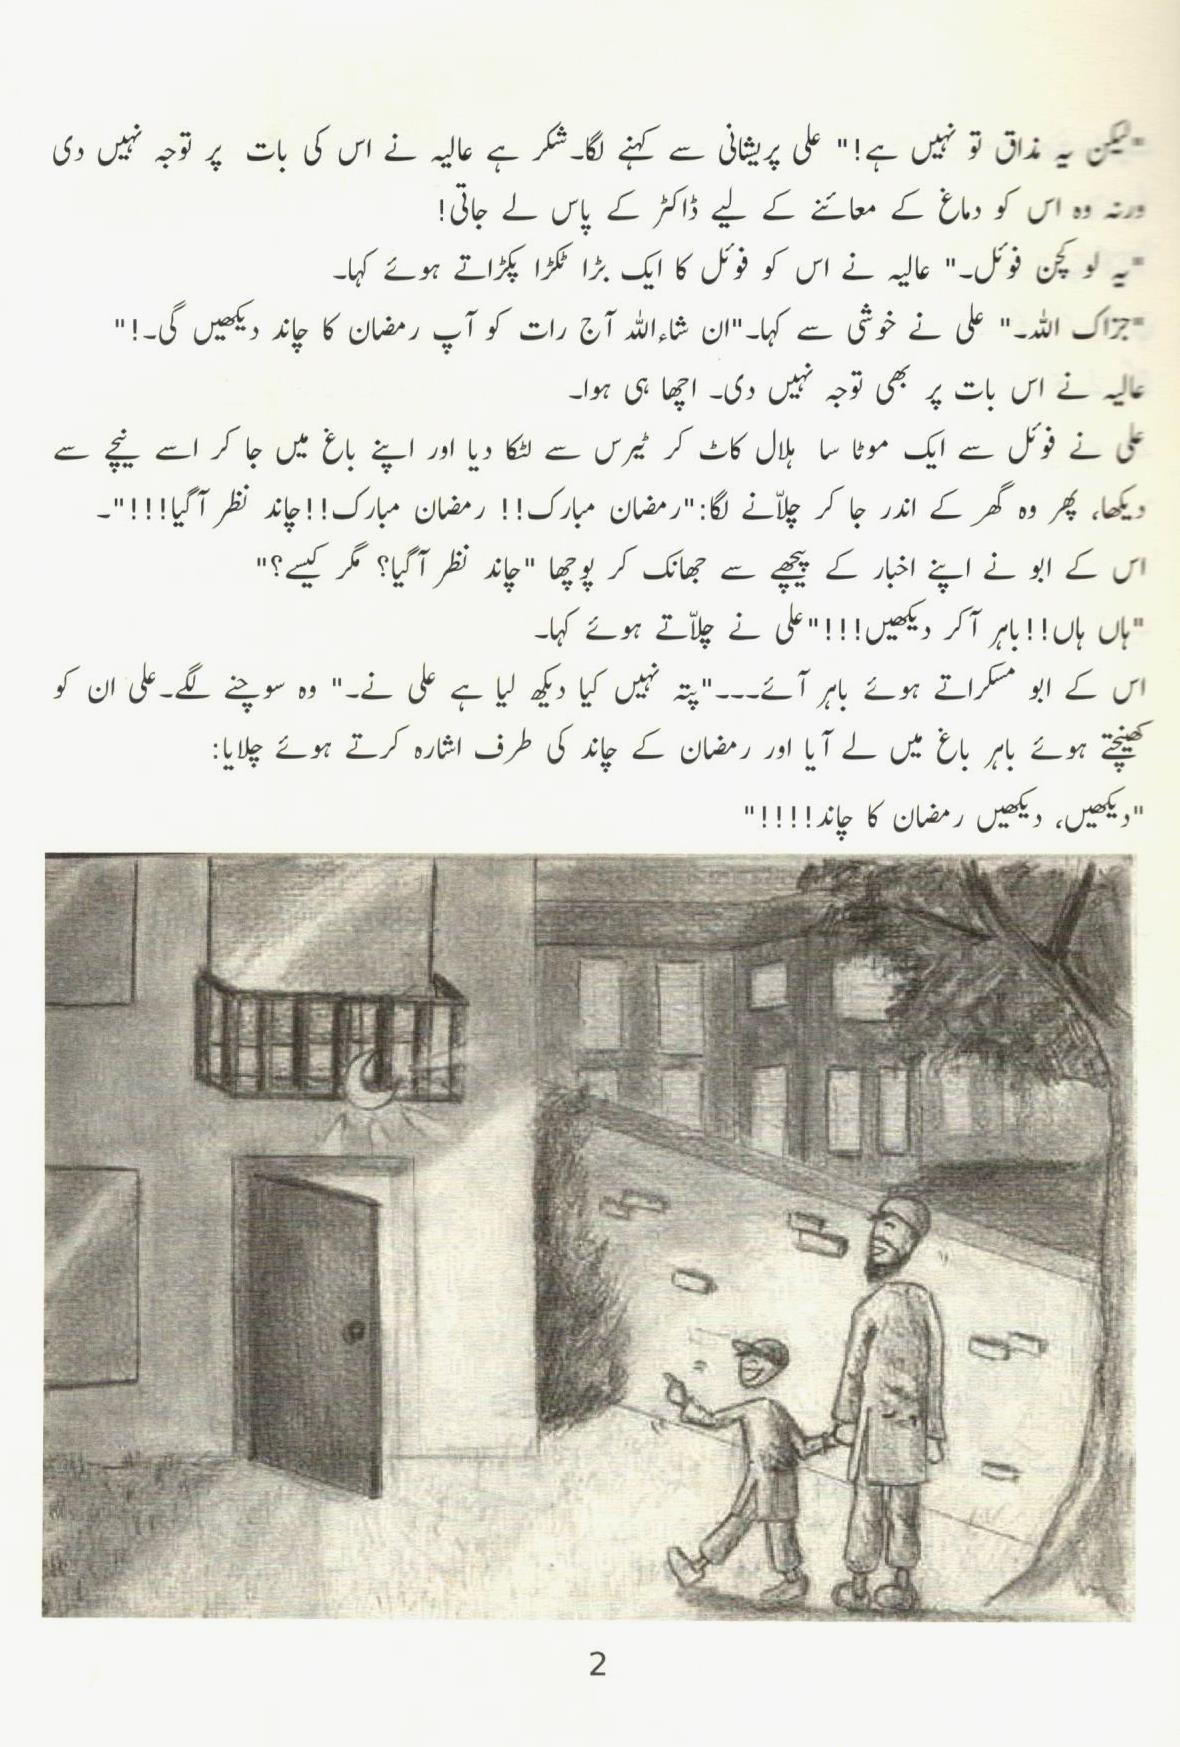 "لیکن یہ مذاق تو نہیں ہے!" علی پریشانی سے کہنے لگا۔شکر ہے عالیہ نے اس کی بات پر توجہ نہیں دی
ورنہ وہ اس کو دماغ کے معائنے کے لیے ڈاکٹر کے پاس لے جاتی!
"یہ لو کچن فوئل۔" عالیہ نے اس کو فوئل کا ایک بڑا ٹکڑا پکڑاتے ہوئے کہا۔
"جزاک اللہ۔" علی نے خوشی سے کہا۔"ان شاءاللہ آج رات کو آپ رمضان کا چاند دیکھیں گی۔!"
عالیہ نے اس بات پر بھی توجہ نہیں دی۔ اچھا ہی ہوا۔
علی نے فوئل سے ایک موٹا سا ہلال کاٹ کر ٹیرس سے لٹکا دیا اور اپنے باغ میں جا کر اسے نیچے سے
دیکھا، پھر وہ گھر کے اندر جا کر چلاّنے لگا:"رمضان مبارک!! رمضان مبارک!!چاند نظر آگیا!!!"۔
اس کے ابو نے اپنے اخبار کے پیچھے سے جھانک کر پوچھا "چاند نظر آگیا؟ مگر کیسے؟"
"ہاں ہاں!!باہر آکر دیکھیں!!!"علی نے چلاّتے ہوئے کہا۔
اس کے ابو مسکراتے ہوئے باہر آئے۔۔۔"پتہ نہیں کیا دیکھ لیا ہے علی نے۔" وہ سوچنے لگے۔علی ان کو
کھینچتے ہوئے باہر باغ میں لے آیا اور رمضان کے چاند کی طرف اشارہ کرتے ہوئے چلایا:
"دیکھیں، دیکھیں رمضان کا چاند!!!!"
2